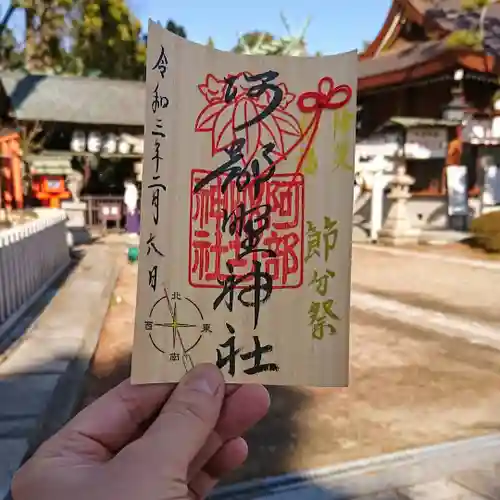 節分祭
阿部野神社
阿部野神社
令和三年二月六日
北
西 東
南